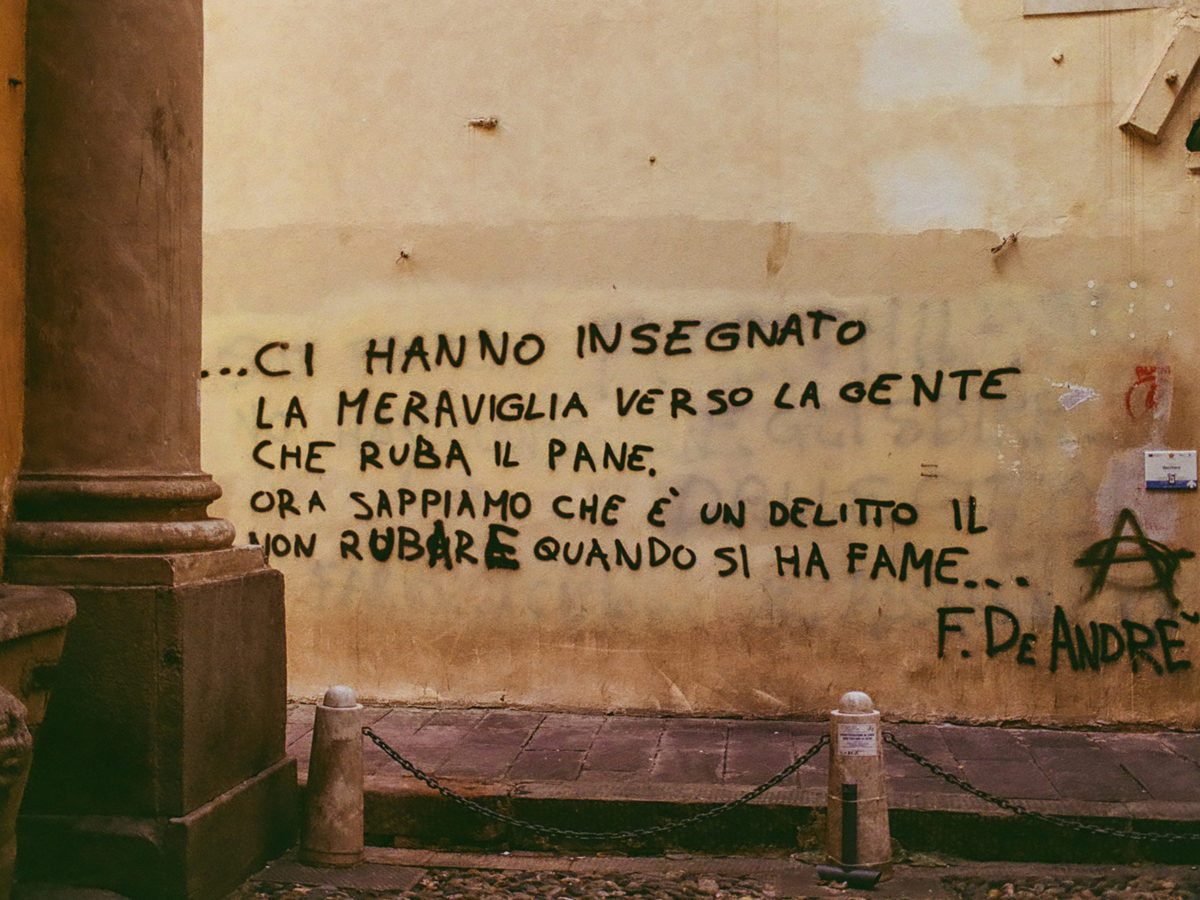 ...CI HANNO INSEGNATO
LA MERAVIGLIA VERSO LA GENTE
CHE RUBA IL PANE.
ORA SAPPIAMO CHE È UN DELITTO IL
NON RUBARE QUANDO SI HA FAME...
A
F. De ANDRE`